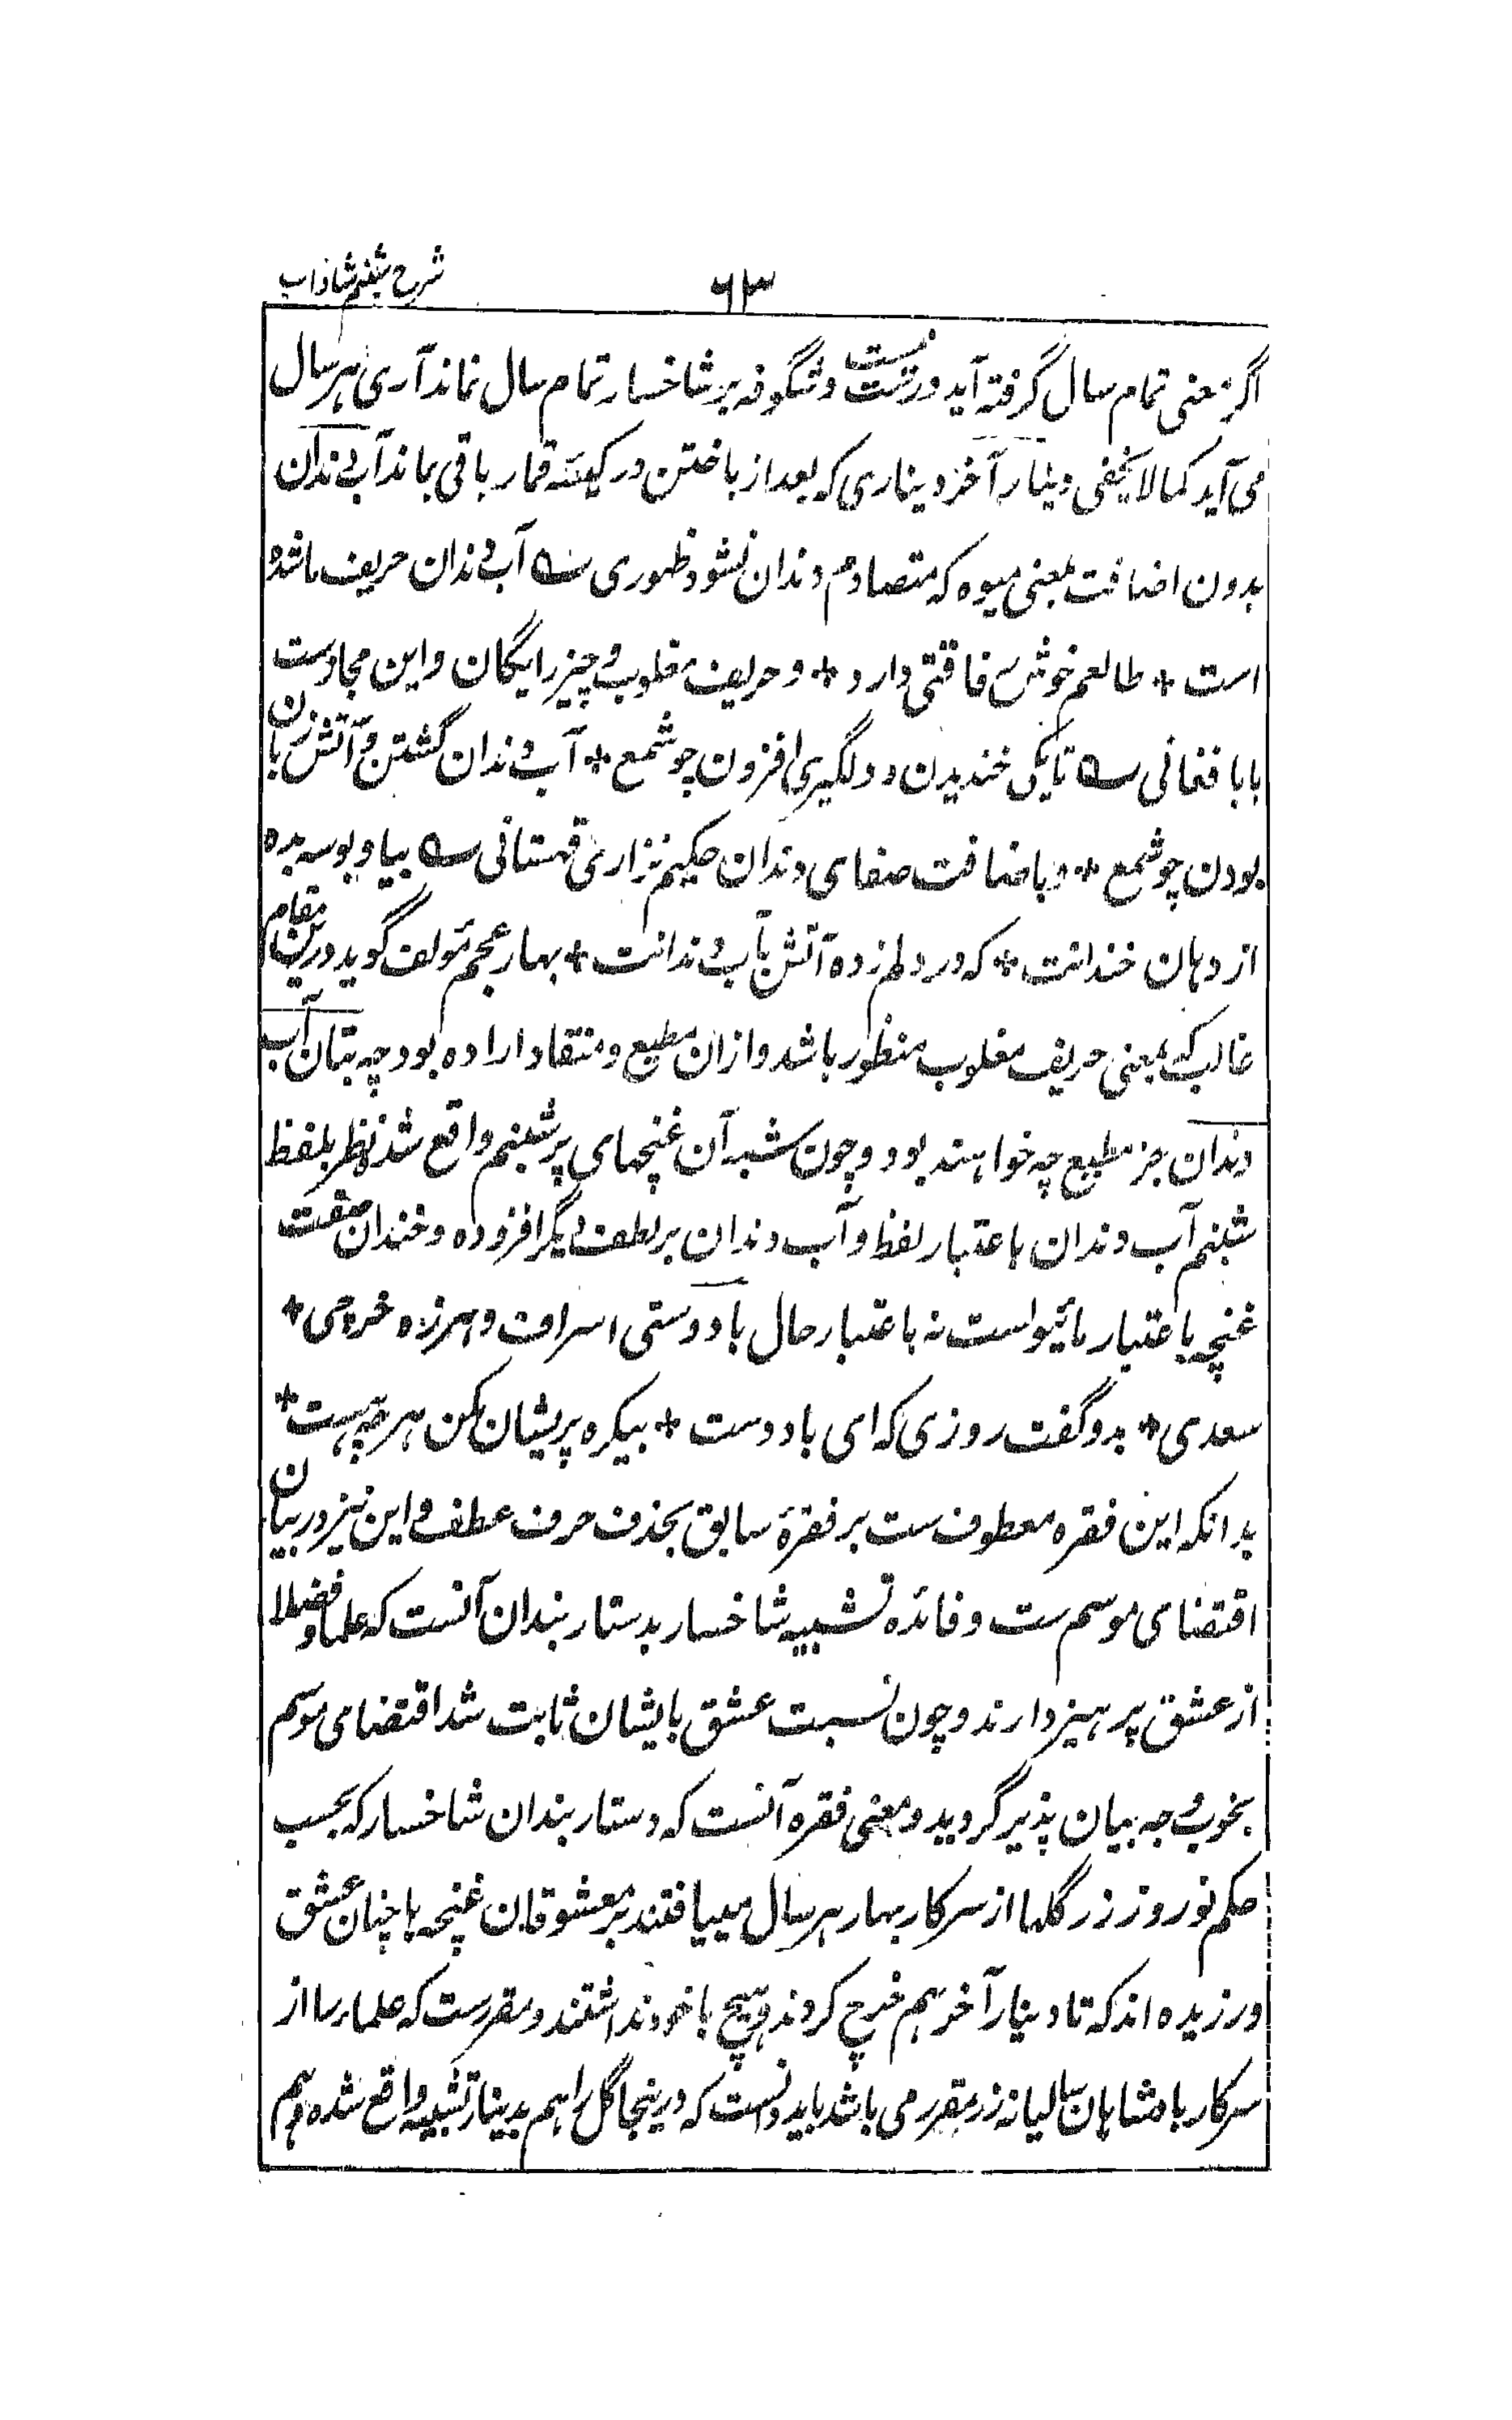 شرح شبنم شاداب
۶۳
اگر بمعنی تمام سال گرفته آید درست نیست و شگوفه بر شاخسار تمام سال نماند آری هر سال
می آید کما لا یخفی دینار آخر دیناری که بعد از باختن در کیسهٔ قمارباقی بماند آب دندان
بدون اضافت بمعنی میوه که متصادم دندان نشود ظهوری ؎ آب دندان حریف ما شده
است * طالعم خوش فاقتی دارد * و حریف مغلوب و چیز رایگان و این مجاز ست
بابا فغانی ؎ تا بکی خندیدن و دلگیری افزون چو شمع * آب دندان گشتن و آتش زبان
بودن چو شمع * و باضافت صفای دندان حکیم نزاری قهستانی ؎ بیا و بوسه بده
از دهان خندانت * که در دلم زده آتش بآب دندانت * بهار عجم مؤلف گوید درین مقام
غالب که بمعنی حریف مغلوب منظور باشد و ازان مطیع و منقاد اراده بود چه بتان آب
دندان جز مطیع چه خواهند بود و چون مشبه آن غنچهای پر شبنم واقع شده نظر بلفظ
شبنم آب دندان باعتبار لفظ و آب دندان بر لطف دیگر افزوده و خندان صفت
غنچه باعتبار مائیول است نه باعتبار حال بادستی اسراف و هرزه خرچی *
سعدی * بدو گفت روزی که ای باد دست * بیکره پریشان مکن هر چه هست *
بدانکه این فقره معطوف ست بر فقرهٔ سابق بحذف حرف عطف و این نیز در بیان
اقتضای موسم ست و فائده تشبیه شاخسار بدستار بندان آنست که علما و فضلا
از عشق پرهیز دارند و چون نسبت عشق بایشان ثابت شد اقتضای موسم
بخوب وجه بیان پذیر گردید و معنی فقره آنست که دستار بندان شاخسار که بحسب
حکم نوروز زر گلها از سرکار بهار هر سال مییافتند بر معشوقان غنچه با چنان عشق
ورزیده اند که تا دینار آخر هم خرچ کردند و هیچ با خود نداشتند و مقررست که علماء را از
سرکار بادشاهان سالیانه زر مقرر می باشد باید دانست که درینجا گل را هم بدینار تشبیه واقع شده و هم